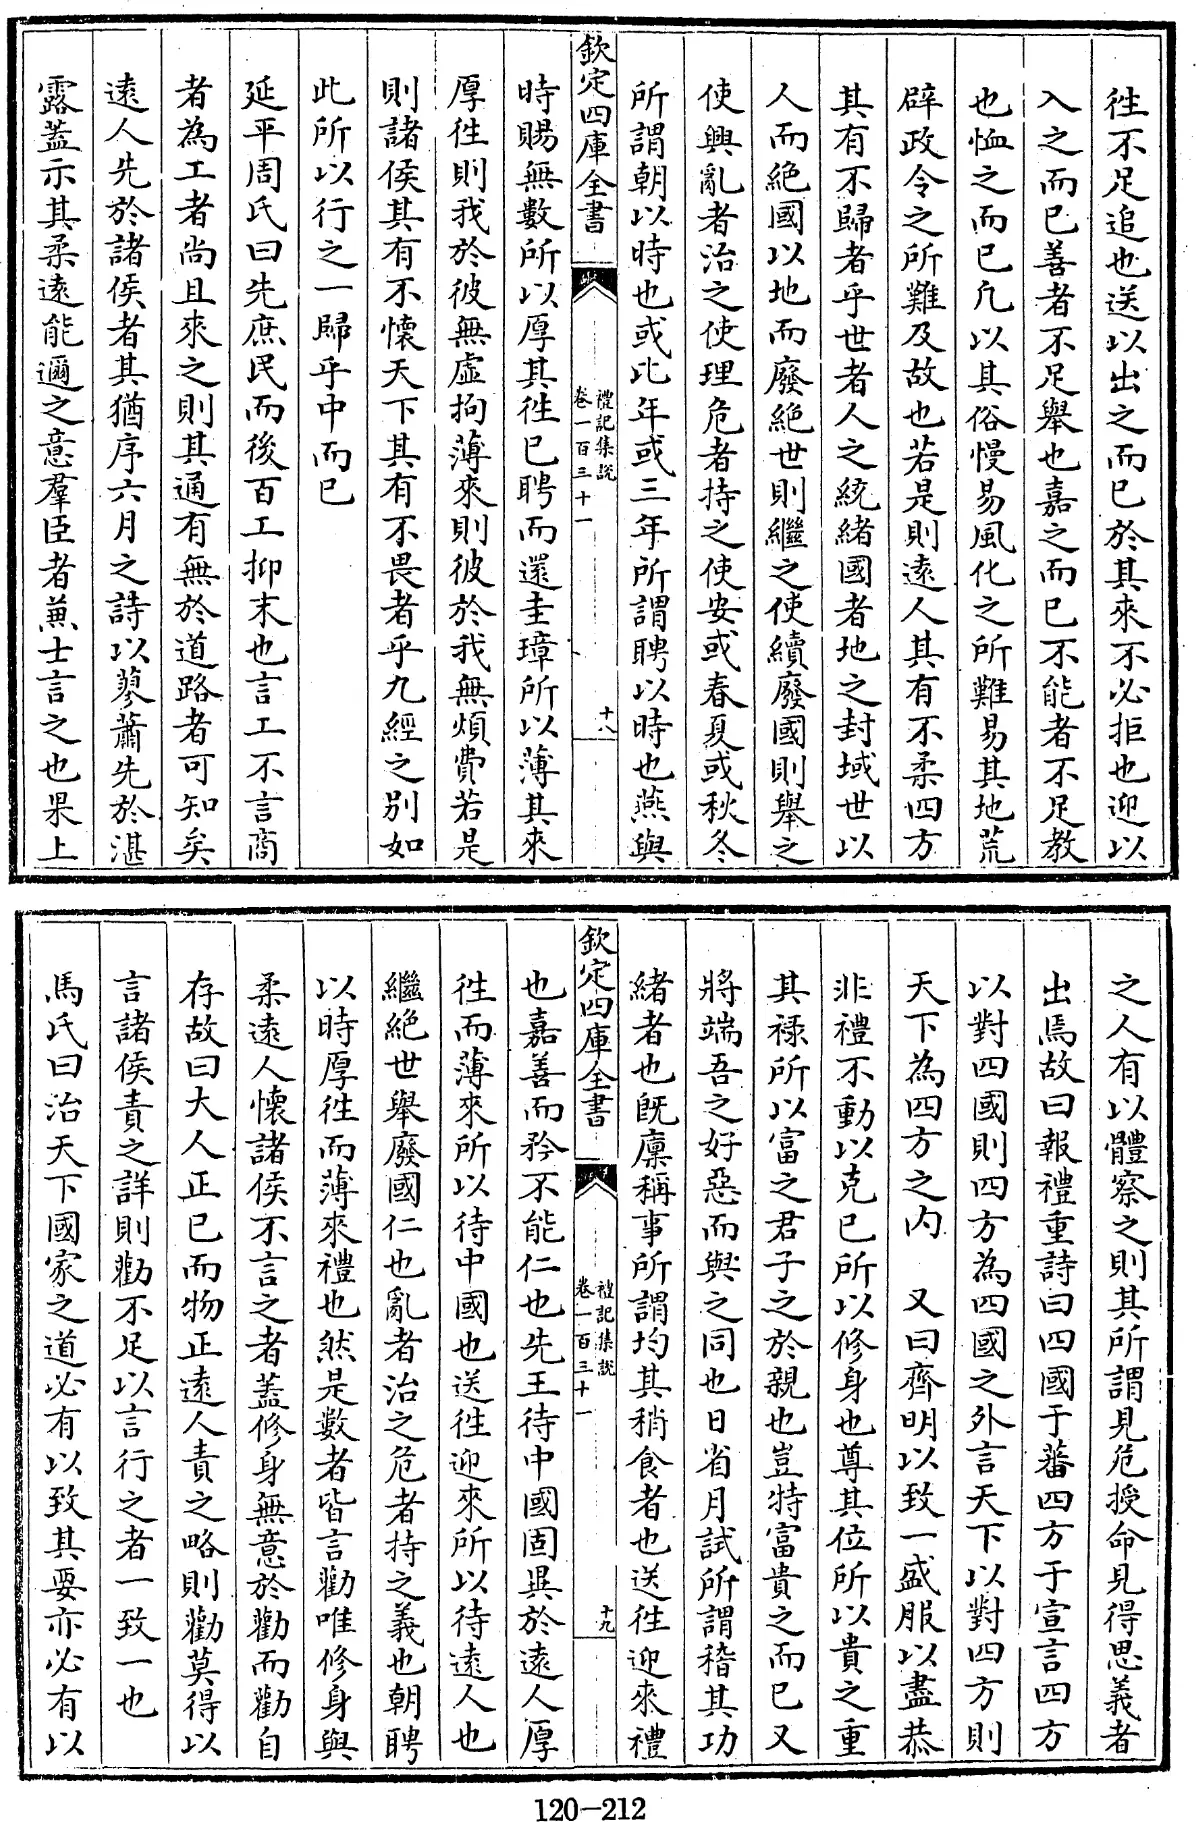 徃不足追也送以出之而已於其來不必拒也迎以
入之而已善者不足舉也嘉之而已不能者不足教
也恤之而已凢以其俗慢易風化之所難易其地荒
辟政令之所難及故也若是則逺人其有不柔四方
其有不歸者乎世者人之統緒國者地之封域世以
人而絶國以地而廢絶世則繼之使續廢國則舉之
使興亂者治之使理危者持之使安或春夏或秋冬
所謂朝以時也或比年或三年所謂聘以時也燕與
欽定四庫全書
禮記集説
卷一百三十一
十八
時賜無數所以厚其徃已聘而還圭璋所以薄其來
厚徃則我於彼無虛拘薄來則彼於我無煩費若是
則諸侯其有不懷天下其有不畏者乎九經之别如
此所以行之一歸乎中而已
延平周氏曰先庶民而後百工抑末也言工不言商
者為工者尚且來之則其通有無於道路者可知矣
逺人先於諸侯者其猶序六月之詩以蓼蕭先於湛
露葢示其柔逺能邇之意羣臣者兼士言之也果上
之人有以體察之則其所謂見危授命見得思義者
出焉故曰報禮重詩曰四國于蕃四方于宣言四方
以對四國則四方為四國之外言天下以對四方則
天下為四方之内　又曰齊明以致一盛服以盡恭
非禮不動以克已所以修身也尊其位所以貴之重
其禄所以富之君子之於親也豈特富貴之而已又
將端吾之好惡而與之同也日省月試所謂稽其功
緒者也既廩稱事所謂均其稍食者也送徃迎來禮
欽定四庫全書
禮記集説
卷一百三十一
十九
也嘉善而矜不能仁也先王待中國固異於逺人厚
徃而薄來所以待中國也送徃迎來所以待逺人也
繼絶世舉廢國仁也亂者治之危者持之義也朝聘
以時厚徃而薄來禮也然是數者皆言勸唯修身與
柔逺人懷諸侯不言之者葢修身無意於勸而勸自
存故曰大人正已而物正逺人責之略則勸莫得以
言諸侯責之詳則勸不足以言行之者一致一也
馬氏曰治天下國家之道必有以致其要亦必有以
120-212